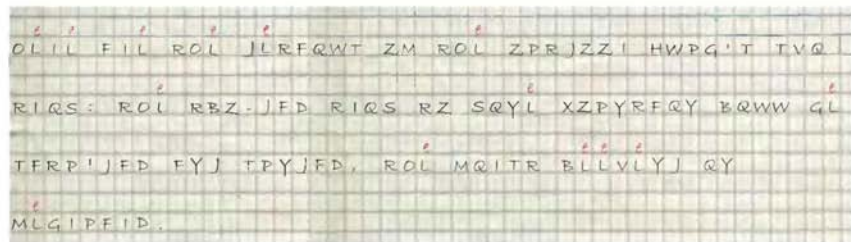 e e e e e e
OLIL FIL ROL JLRFQWT ZM ROL ZPRJZZI HWPG'T TVQ
e e e
RIQS: ROL RBZ-JFD RIQS RZ SQYL XZPYRFQY BQWW GL
e e e e
TFRPIJFD FYJ TPYJFD, ROL MQITR BLLVLYJ QY
e
MLGIPFID.